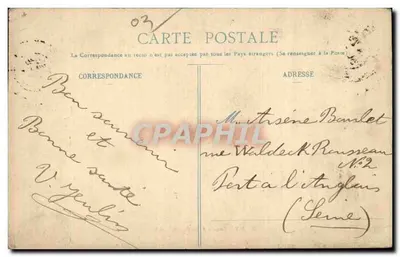 03
CARTE POSTALE
La Correspondance au recto n'est pas acceptée par tous les Pays étrangers (Se renseigner à la Poste)
CORRESPONDANCE
ADRESSE
Bon souvenir
et
Bonne santé
V.
M. Arsène
rue Waldeck Rousseau
N° 2
Port a l'Anglais
(Seine)
CPAPHIL.com